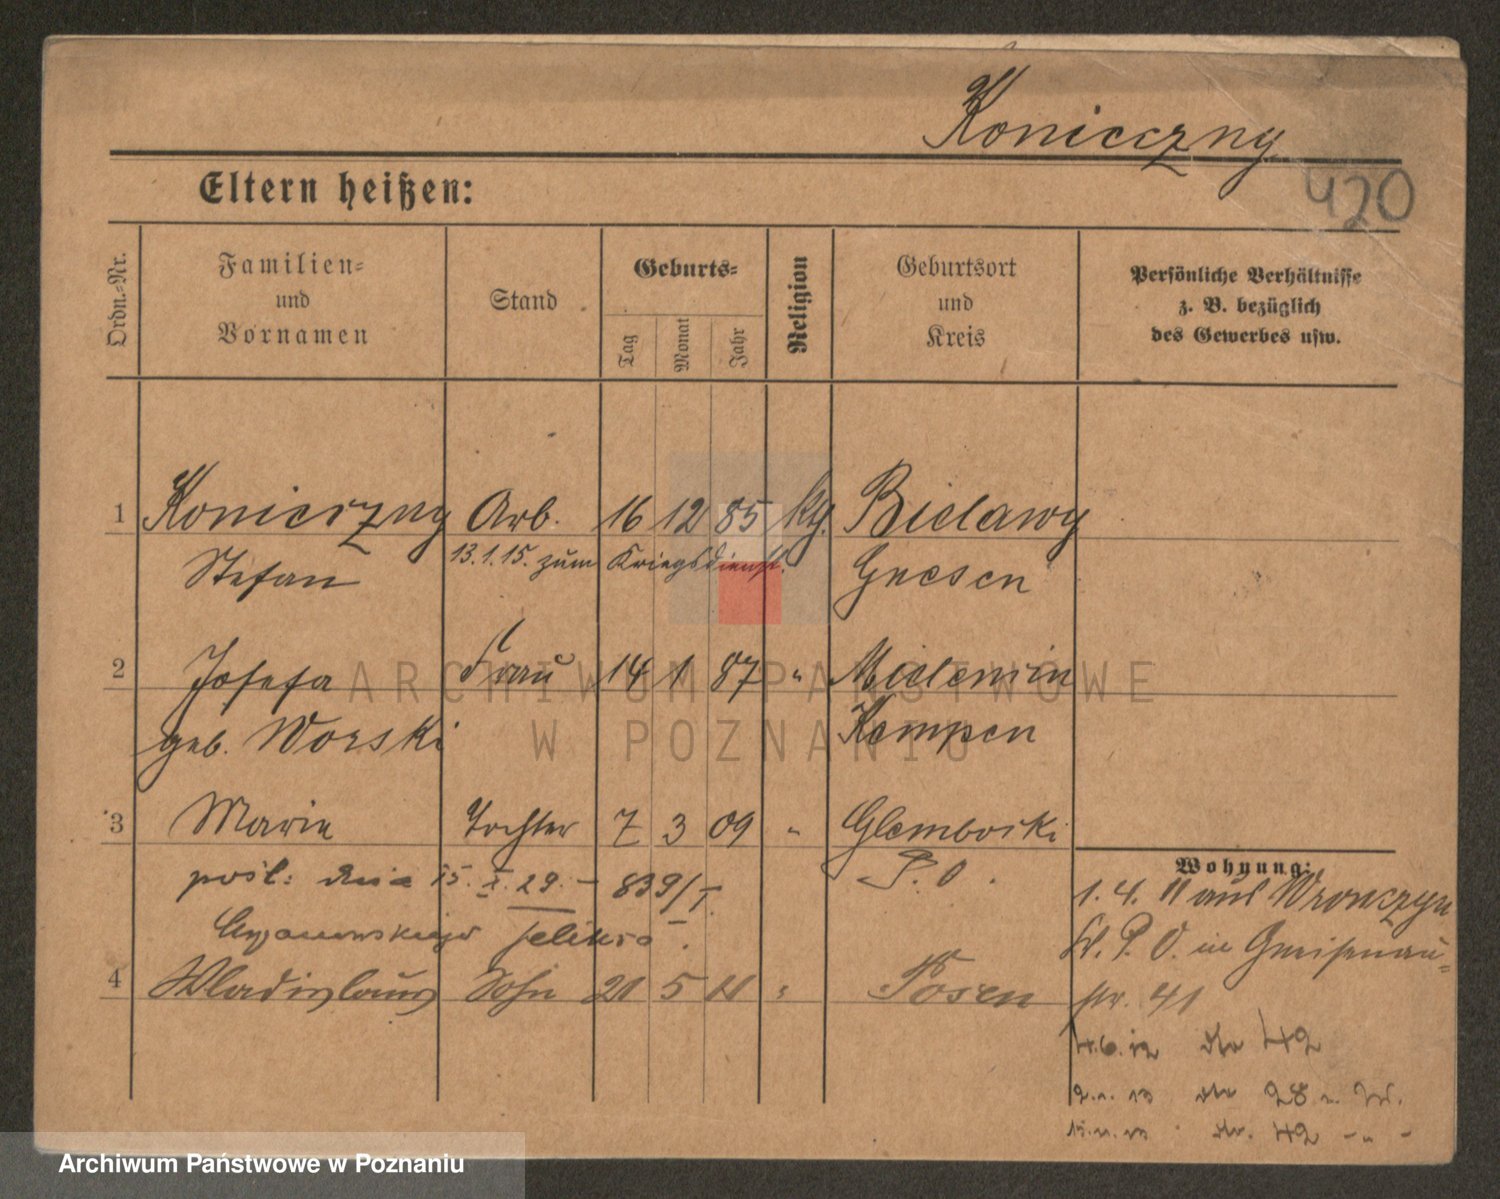 Konieczny
420
Eltern heißen:
Ordn.-Nr.
Familien- und Vornamen
Stand
Geburts-
Tag
Monat
Jahr
Religion
Geburtsort und Kreis
Persönliche Verhältnisse z. B. bezüglich des Gewerbes usw.
1 Konieczny Arb. 16 12 85 Kg. Bielawy
Stefan 13.1.15. zum Kriegsdienst. Gnesen
2 Josefa Frau 14 1 87 " Mielencin
geb. Worski Kempen
3 Marie Tochter 7 3 09 " Glembocki
P. O.
Wohnung:
pośl: dnia 15. X. 29. – 839/I.
1. 4. 11 aus Wronczyn
Feliksa.
Kr. P. O. in Gneisenau-
4 Wladislaus Sohn 21 5 11 " Posen
str. 41
4.6.12 42
28
42
ARCHIWUM PAŃSTWOWE
W POZNANIU
Archiwum Państwowe w Poznaniu